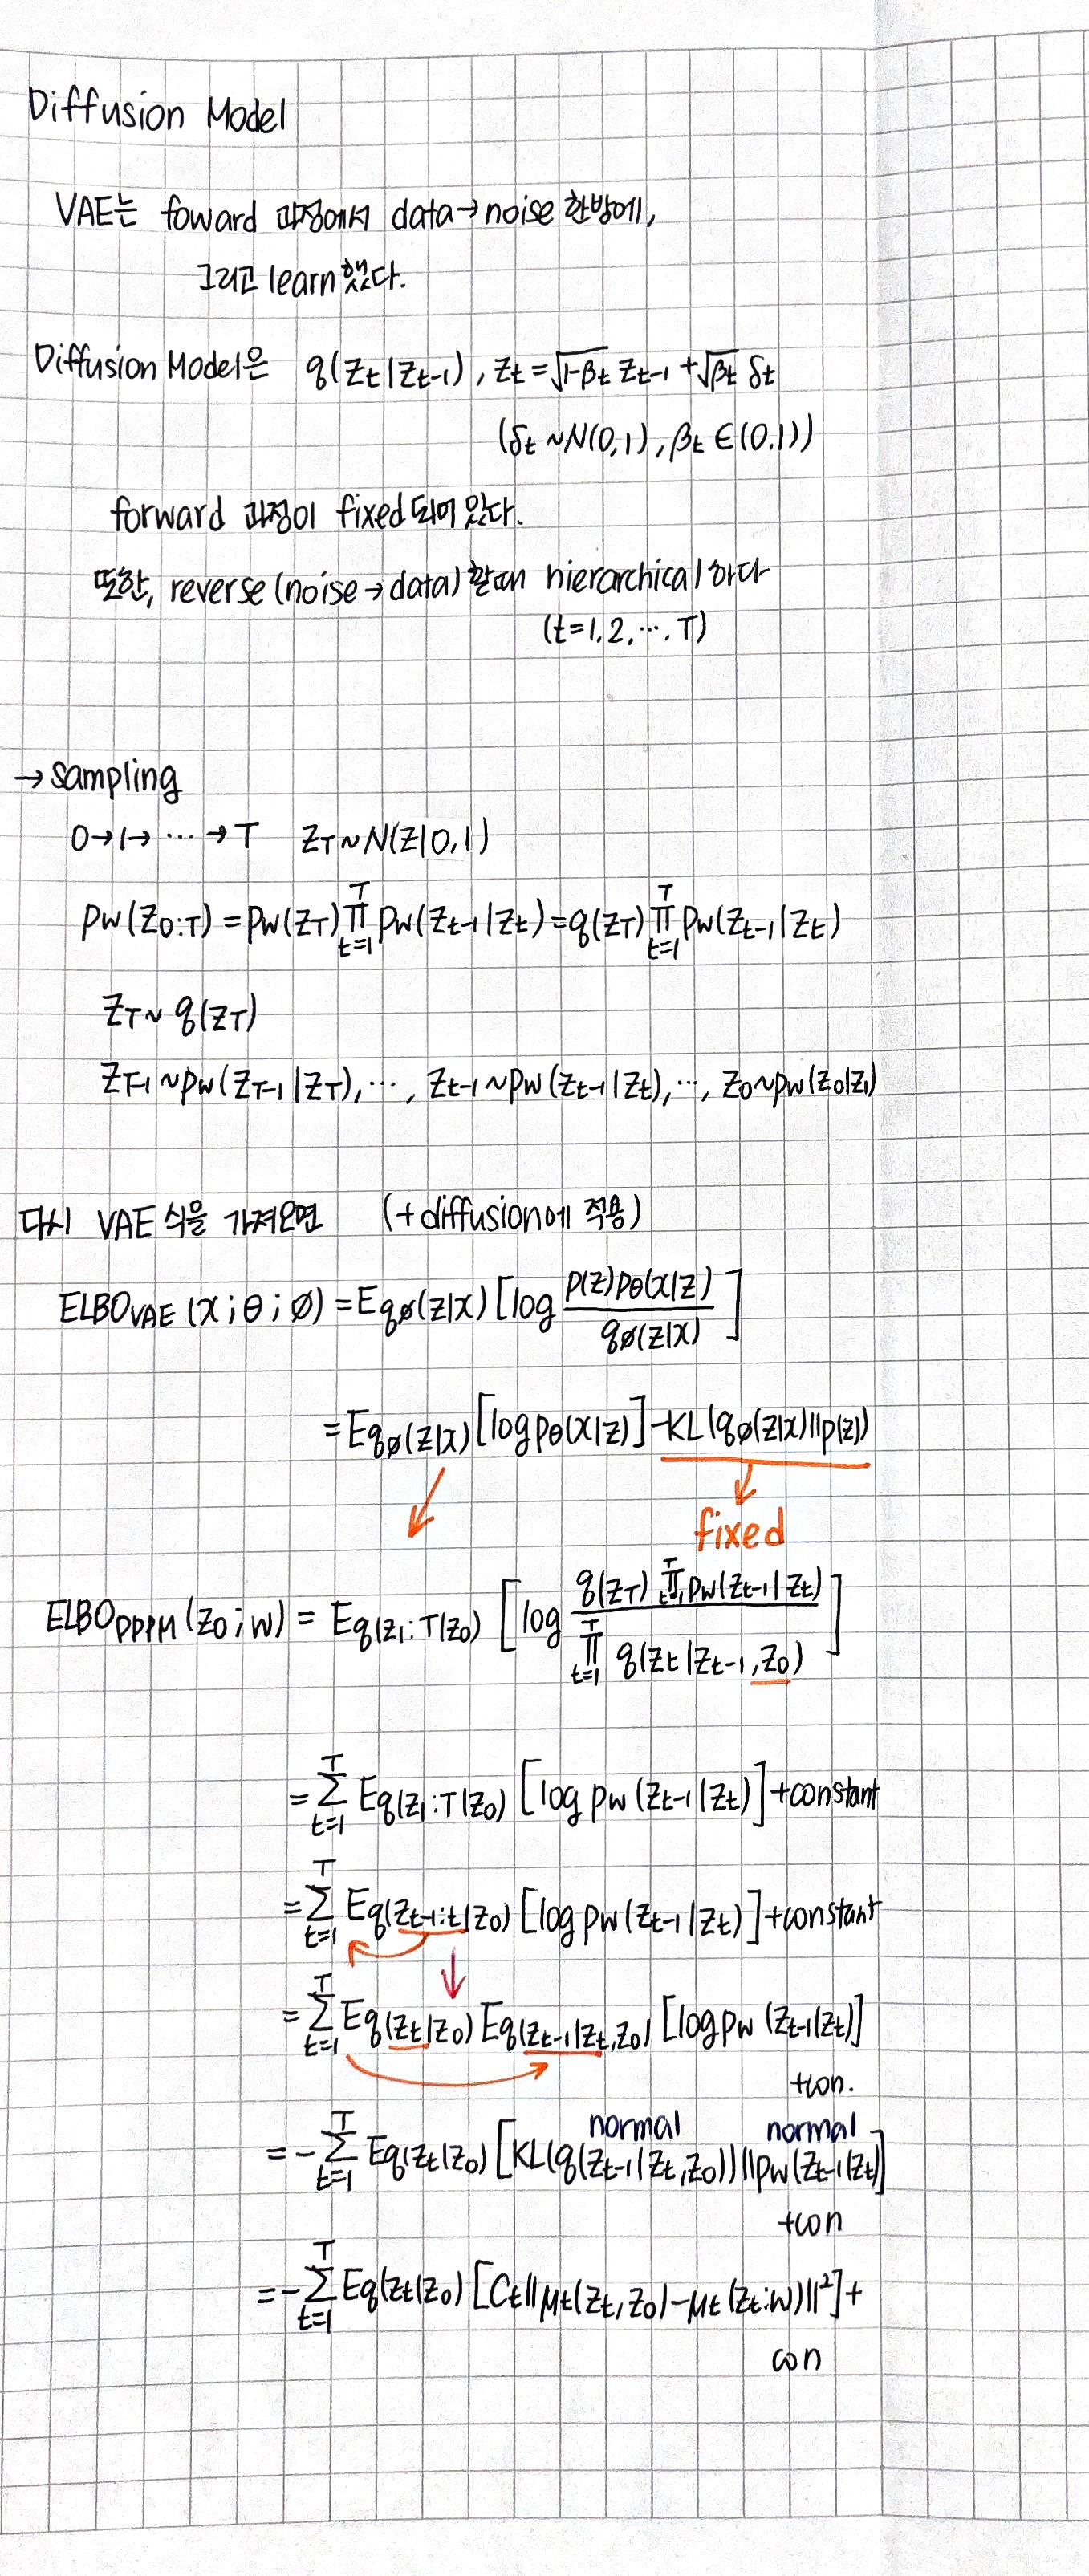 Diffusion Model
VAE는 foward 과정에서 data→noise 한방에,
그리고 learn했다.
Diffusion Model은 q(Zt|Zt-1), Zt=√1-βt Zt-1 +√βt δt
(δt ~N(0,1), βt ∈(0.1))
forward 과정이 fixed되어 있다.
또한, reverse(noise→data)할땐 hierarchical하다
(t=1,2,…,T)
→ sampling
0→1→ … →T ZT~N(Z|0,1)
pw(Z0:T) = pw(ZT) ∏_{t=1}^{T} pw(Zt-1|Zt) = q(ZT) ∏_{t=1}^{T} pw(Zt-1|Zt)
ZT~ q(ZT)
ZT-1 ~pw(ZT-1|ZT), …, Zt-1~pw(Zt-1|Zt), …, Z0~pw(Z0|Z1)
다시 VAE 식을 가져오면 (+diffusion에 적용)
ELBOVAE (x;θ;ø) = Eqø(z|x) [log p(z)pθ(x|z) / qø(z|x)]
= Eqø(z|x) [log pθ(x|z)] -KL(qø(z|x)||p(z))
fixed
ELBODPPM(Z0;w) = Eq(Z1:T|Z0) [log q(ZT) ∏_{t=1}^{T} pw(Zt-1|Zt) / ∏_{t=1}^{T} q(Zt|Zt-1,Z0)]
= Σ_{t=1}^{T} Eq(Z1:T|Z0) [log pw(Zt-1|Zt)] +constant
= Σ_{t=1}^{T} Eq(Zt-1:t|Z0) [log pw(Zt-1|Zt)] +constant
= Σ_{t=1}^{T} Eq(Zt|Z0) Eq(Zt-1|Zt,Z0) [log pw (Zt-1|Zt)]
+con.
normal normal
= -Σ_{t=1}^{T} Eq(Zt|Z0) [KL(q(Zt-1|Zt,Z0))||pw(Zt-1|Zt)]
+con
= -Σ_{t=1}^{T} Eq(Zt|Z0) [Ct||μt(Zt,Z0)-μt(Zt:w)||²] +
con